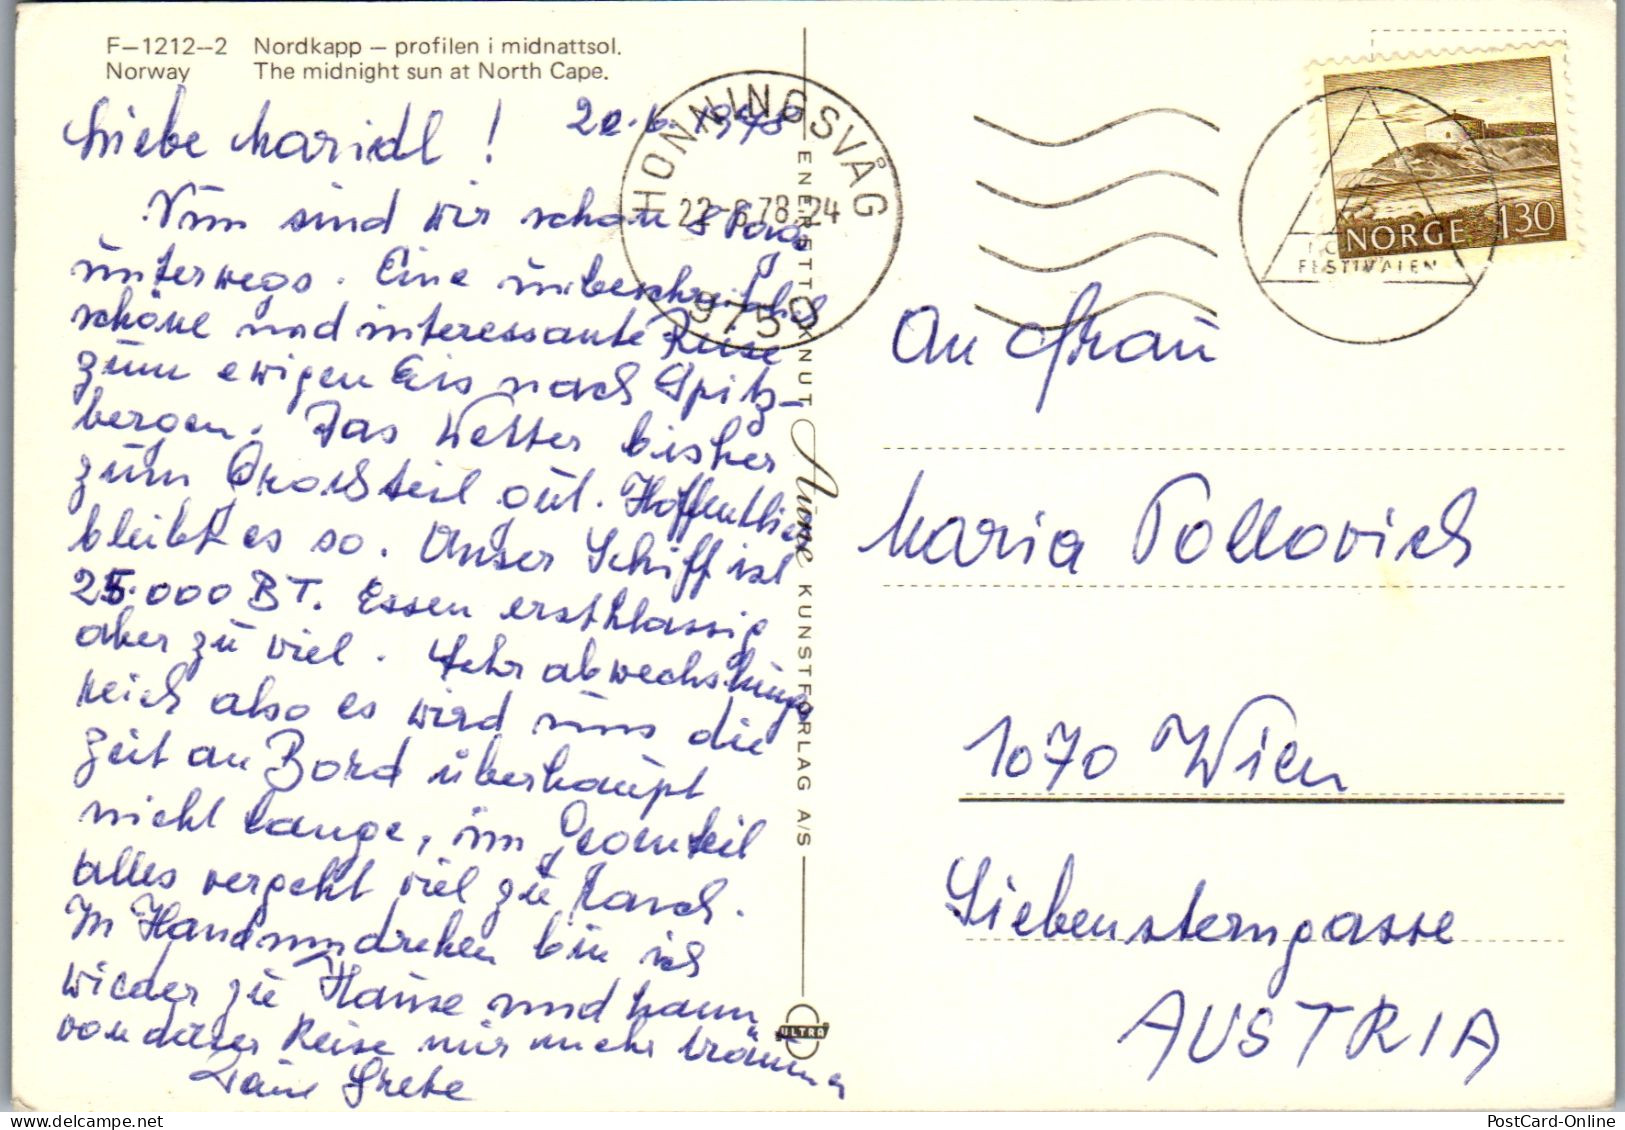 F–1212–2 Nordkapp – profilen i midnattsol.
Norway The midnight sun at North Cape.
Liebe Maridl! 20.6.1978
Nun sind wir schon 8 Tage
unterwegs. Eine unbeschreiblich
schöne und interessante Reise
zum ewigen Eis nach Spitz-
bergen. Das Wetter bisher
zum Grossteil gut. Hoffentlich
bleibt es so. Unser Schiff ist
25.000 BT. Essen erstklassig
aber zu viel. Sehr abwechslungs
reich also es wird uns die
Zeit an Bord überhaupt
nicht lange, im Gegenteil
alles vergeht viel zu rasch.
Im Handumdrehen bin ich
wieder zu Hause und kann
von dieser Reise nur mehr träumen
Grete
HONNINGSVÅG
22-6.78-24
9750
ENERETT KNUT Aune KUNSTFORLAG A/S
ULTRA
NORGE 130
FESTIVALEN
An Frau
Maria
1070 Wien
Siebensterngasse
AUSTRIA
PostCard-Online